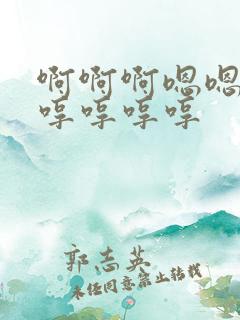 啊啊啊嗯嗯
哼哼哼哼
郭志英
未经同意禁止转载